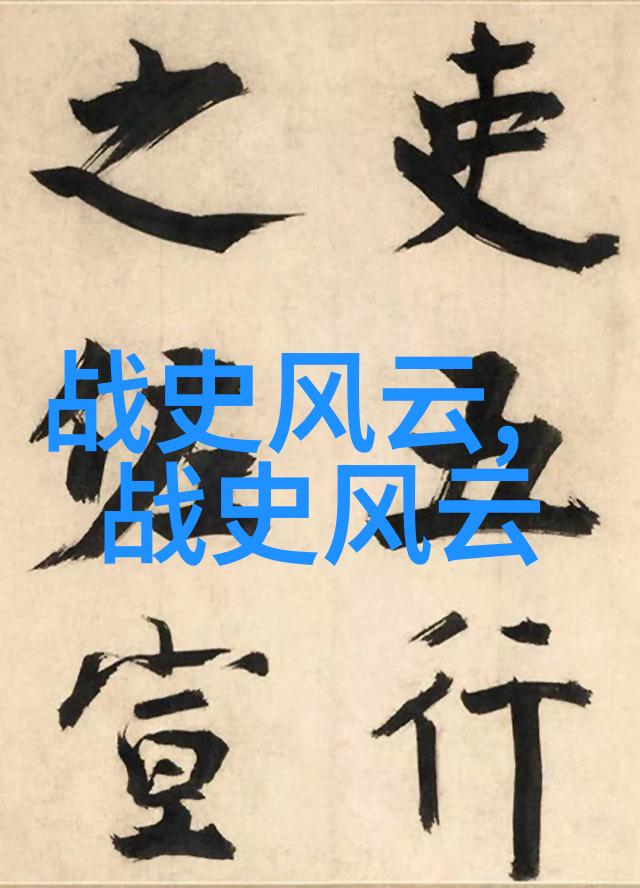 吏五行
之佐宣
战史风云,
战史风云